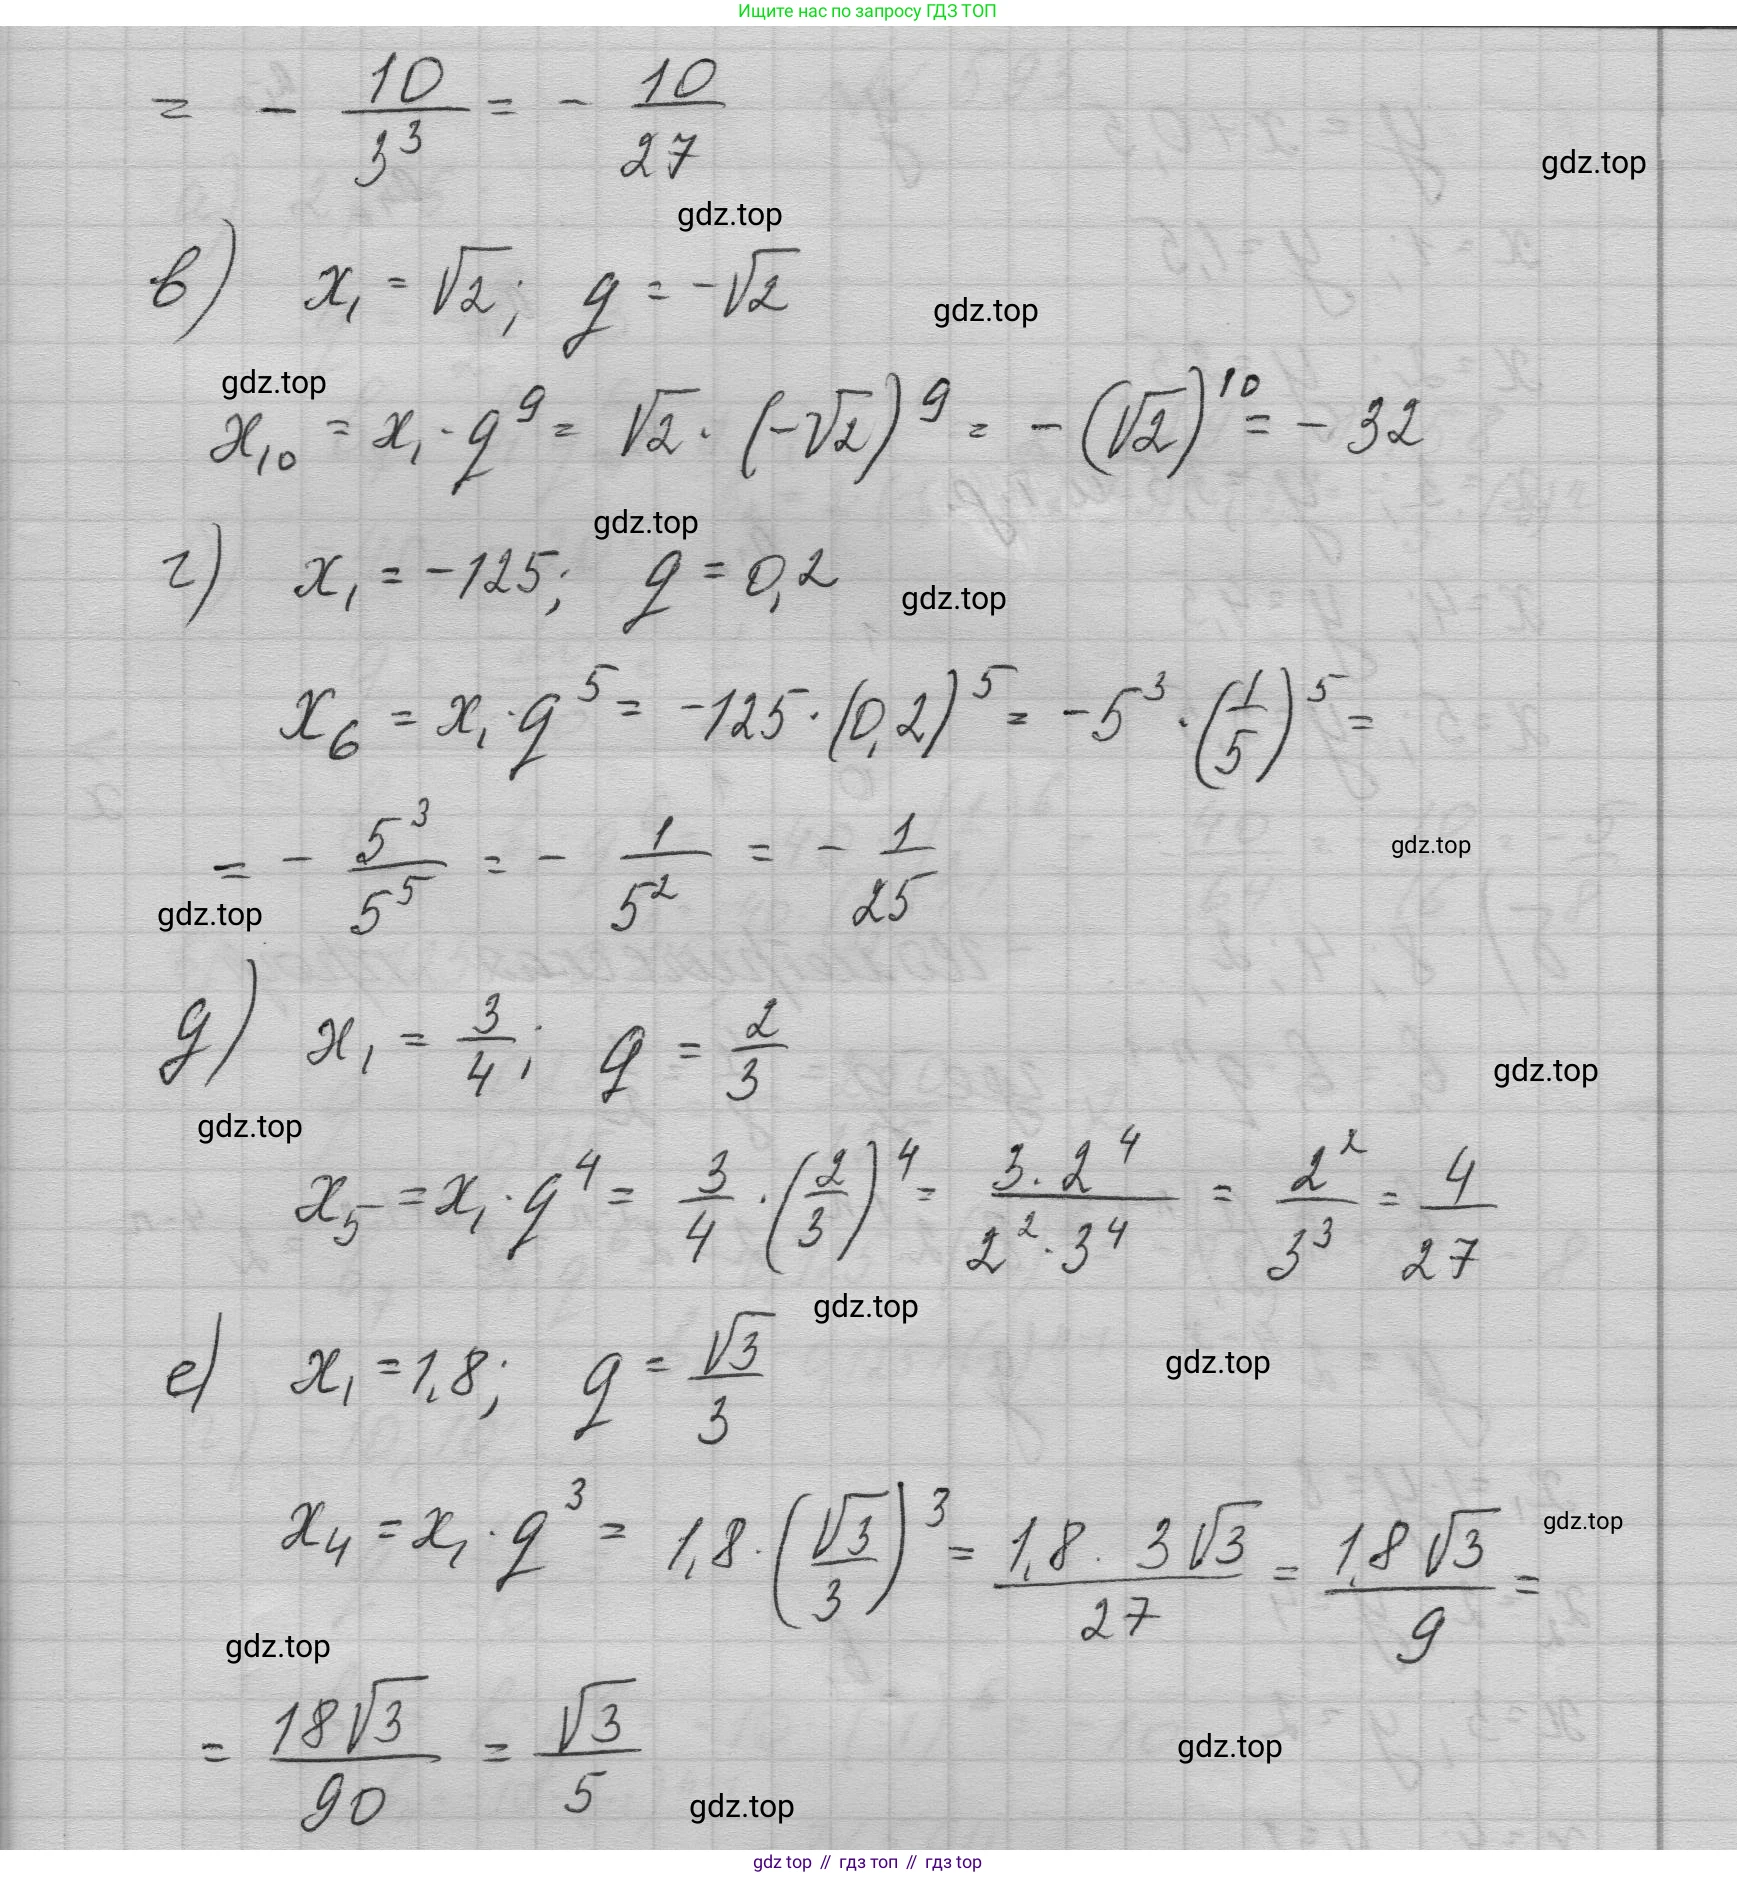 Ищите нас по запросу ГДЗ ТОП
= - 10/3³ = - 10/27
gdz.top
gdz.top
в) x₁ = √2; q = -√2
gdz.top
gdz.top
x₁₀ = x₁ · q⁹ = √2 · (-√2)⁹ = -(√2)¹⁰ = -32
gdz.top
г) x₁ = -125; q = 0,2
gdz.top
x₆ = x₁ · q⁵ = -125 · (0,2)⁵ = -5³ · (1/5)⁵ =
= - 5³/5⁵ = - 1/5² = - 1/25
gdz.top
gdz.top
д) x₁ = 3/4; q = 2/3
gdz.top
gdz.top
x₅ = x₁ · q⁴ = 3/4 · (2/3)⁴ = 3·2⁴/2²·3⁴ = 2²/3³ = 4/27
gdz.top
е) x₁ = 1,8; q = √3/3
gdz.top
x₄ = x₁ · q³ = 1,8 · (√3/3)³ = 1,8 · 3√3/27 = 1,8√3/9 =
gdz.top
gdz.top
= 18√3/90 = √3/5
gdz.top
gdz.top
gdz top // гдз топ // гдз top